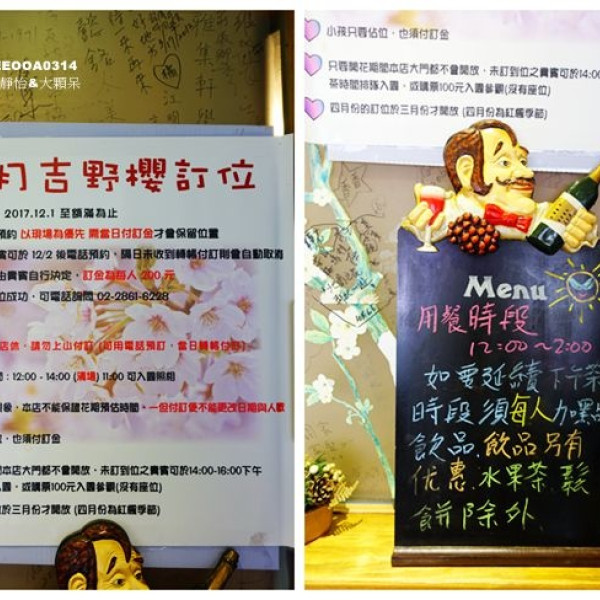 EEOOA0314
靜怡&大顆呆
吉野櫻訂位
2017.12.1 至額滿為止
預約 以現場為優先 需當日付訂金才會保留位置
賓可於 12/2 後電話預約, 隔日未收到轉帳付訂則會自動取消
由貴賓自行決定, 訂金為每人 200 元
位成功, 可電話詢問 02-2861-6228
店休, 請勿上山付訂 (可用電話預訂, 當日轉帳付訂)
間: 12:00 - 14:00 (清場) 11:00 可入園照相
象, 本店不能保證花期預估時間, 一但付訂便不能更改日期與人數
, 也須付訂金
間本店大門都不會開放, 未訂到位之貴賓可於14:00-16:00下午
入園, 或購票100元入園參觀(沒有座位)
位於三月份才開放 (四月份為紅楓季節)
小孩只要佔位, 也須付訂金
只要開花期間本店大門都不會開放, 未訂到位之貴賓可於14:00
茶時間排隊入園, 或購票100元入園參觀(沒有座位)
四月份的訂位於三月份才開放 (四月份為紅楓季節)
Menu
用餐時段
12:00~2:00
如要延續下午茶
時段須每人加點
飲品.飲品另有
優惠.水果茶.鬆
餅除外.